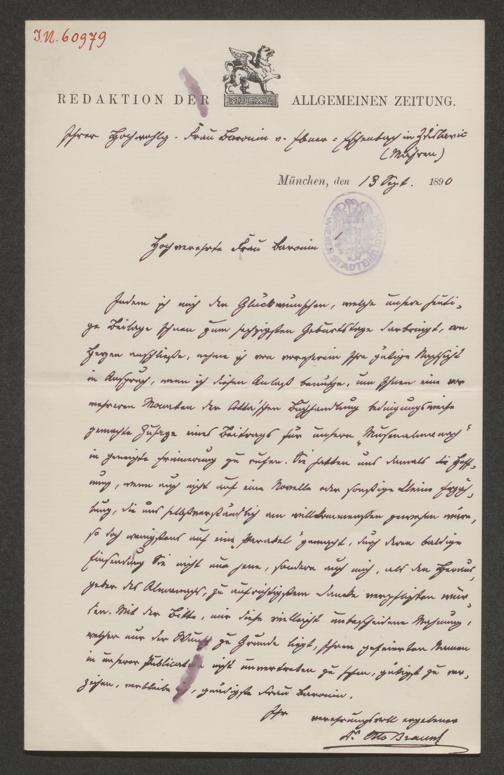 I.N. 60979
REDAKTION DER ALLGEMEINEN ZEITUNG.
Ihrer Hochwohlg. Frau Baronin v. Ebner-Eschenbach in Zdislavic
(Mähren)
München, den 13 Sept. 1890
Hochverehrte Frau Baronin!
Indem ich mich den Glückwünschen, welche unsere heuti-
ge Beilage Ihnen zum sechzigsten Geburtstage darbringt, von
Herzen anschließe, nehme ich von vornherein Ihre gütige Nachsicht
in Anspruch, wenn ich diesen Anlaß benutze, um Ihnen eine vor
mehreren Monaten der Cotta'schen Buchhandlung bedingungsweise
gemachte Zusage eines Beitrags für unseren "Musenalmanach"
in geneigte Erinnerung zu rufen. Sie hatten uns damals die Hoff-
nung, wenn auch nicht auf eine Novelle oder sonstige kleine Erzäh-
lung, die uns selbstverständlich am willkommensten gewesen wäre,
so doch wenigstens auf eine "Parabel" gemacht, durch deren baldige
Einsendung Sie nicht nur jene, sondern auch mich, als den Heraus-
geber des Almanachs, zu aufrichtigstem Danke verpflichten wür-
den. Mit der Bitte, mir diese vielleicht unbescheidene Mahnung,
welcher nur der Wunsch zu Grunde liegt, Ihren gefeierten Namen
in unserer Publication nicht unvertreten zu sehen, gütigst zu ver-
zeihen, verbleibe ich, gnädigste Frau Baronin,
Ihr verehrungsvoll ergebener
Dr. Otto Braun